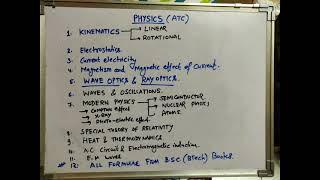 PHYSICS (ATC)
1. KINEMATICS → LINEAR
→ ROTATIONAL
2. Electrostatics.
3. Current electricity
4. Magnetism and Magnetic effect of Current.
5. WAVE OPTICS & RAY OPTICS.
6. WAVES & OSCILLATIONS.
7. MODERN PHYSICS → SEMICONDUCTOR
→ Compton effect → NUCLEAR PHYSICS
→ X-Ray → ATOMS.
→ Photo-electric effect
8. SPECIAL THEORY OF RELATIVITY
9. HEAT & THERMODYNAMICS
10. A.C Circuit & Electromagnetic induction
11. E.M waves
# 12. ALL FORMULAE FROM B.SC (BTech) Books.